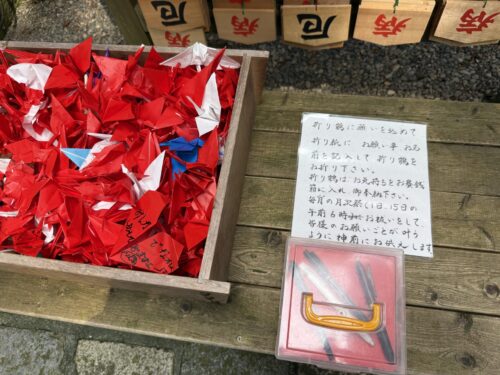 厄
病
病
厄
病
病
折り鶴に願いを込めて
折り紙に お願い事 お名
前を記入して 折り鶴を
お折り下さい。
折り鶴は お気持ちをお賽銭
箱に入れ 御奉納下さい。
毎月の月次祭(1日.15日の
午前6時)にお祓いをして
皆様のお願いごとが叶う
ように神前にお伝えします